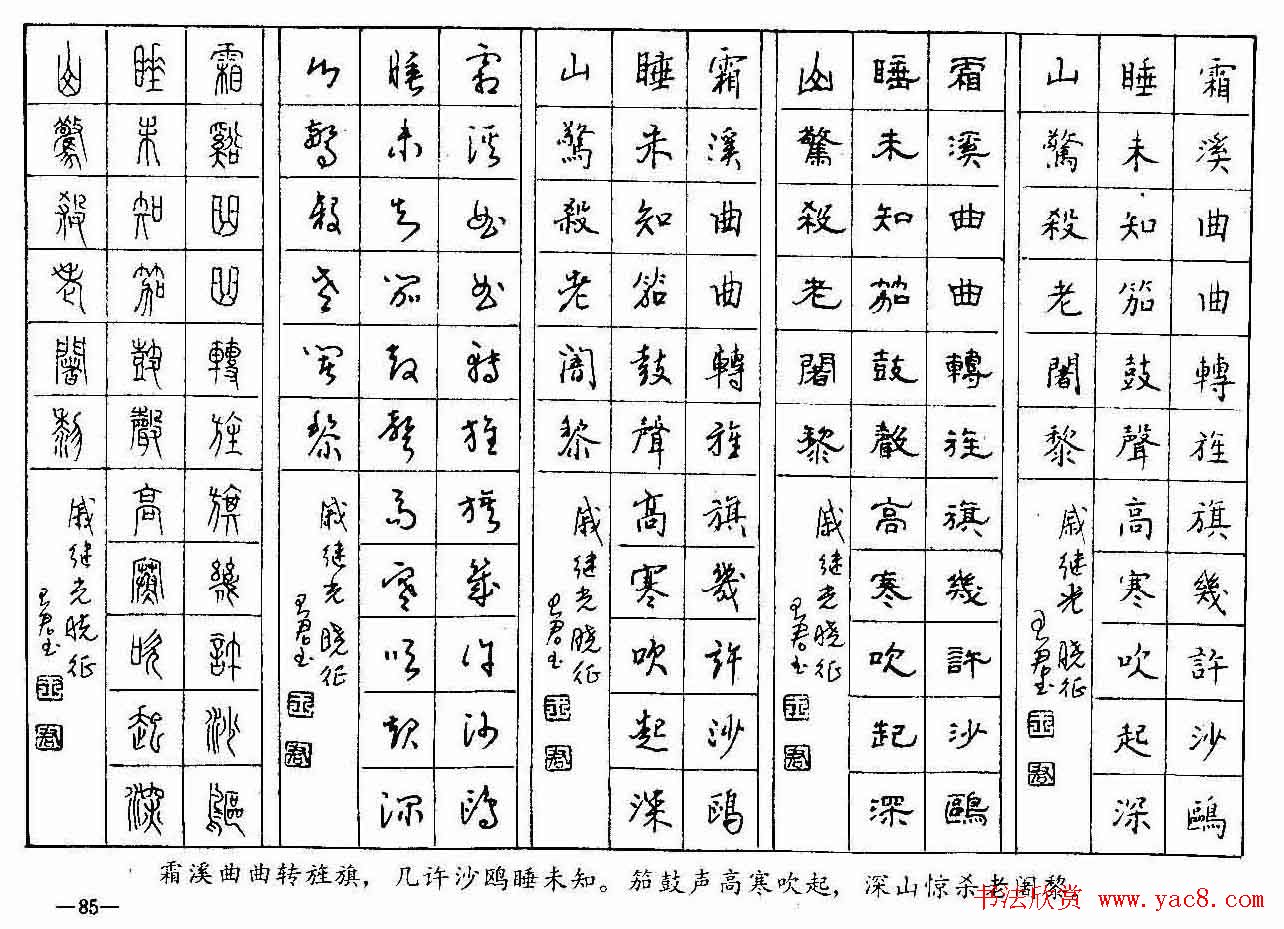 霜溪曲曲轉旌旗幾許沙鷗
睡未知笳鼓聲高寒吹起深
山驚殺老闍黎
戚继光 晓征
霜溪曲曲轉旌旗幾許沙鷗
睡未知笳鼓聲高寒吹起深
山驚殺老闍黎
戚继光 晓征
霜溪曲曲轉旌旗幾許沙鷗
睡未知笳鼓聲高寒吹起深
山驚殺老闍黎
戚继光 晓征
霜溪曲曲轉旌旗幾許沙鷗
睡未知笳鼓聲高寒吹起深
山驚殺老闍黎
戚继光 晓征
霜谿曲曲轉旌旗幾許沙鷗
睡未知笳鼓聲高寒吹起深
山驚殺老闍黎
戚继光 晓征
霜溪曲曲转旌旗，几许沙鸥睡未知。笳鼓声高寒吹起，深山惊杀老阇黎。
—85—
书法欣赏 www.yac8.com